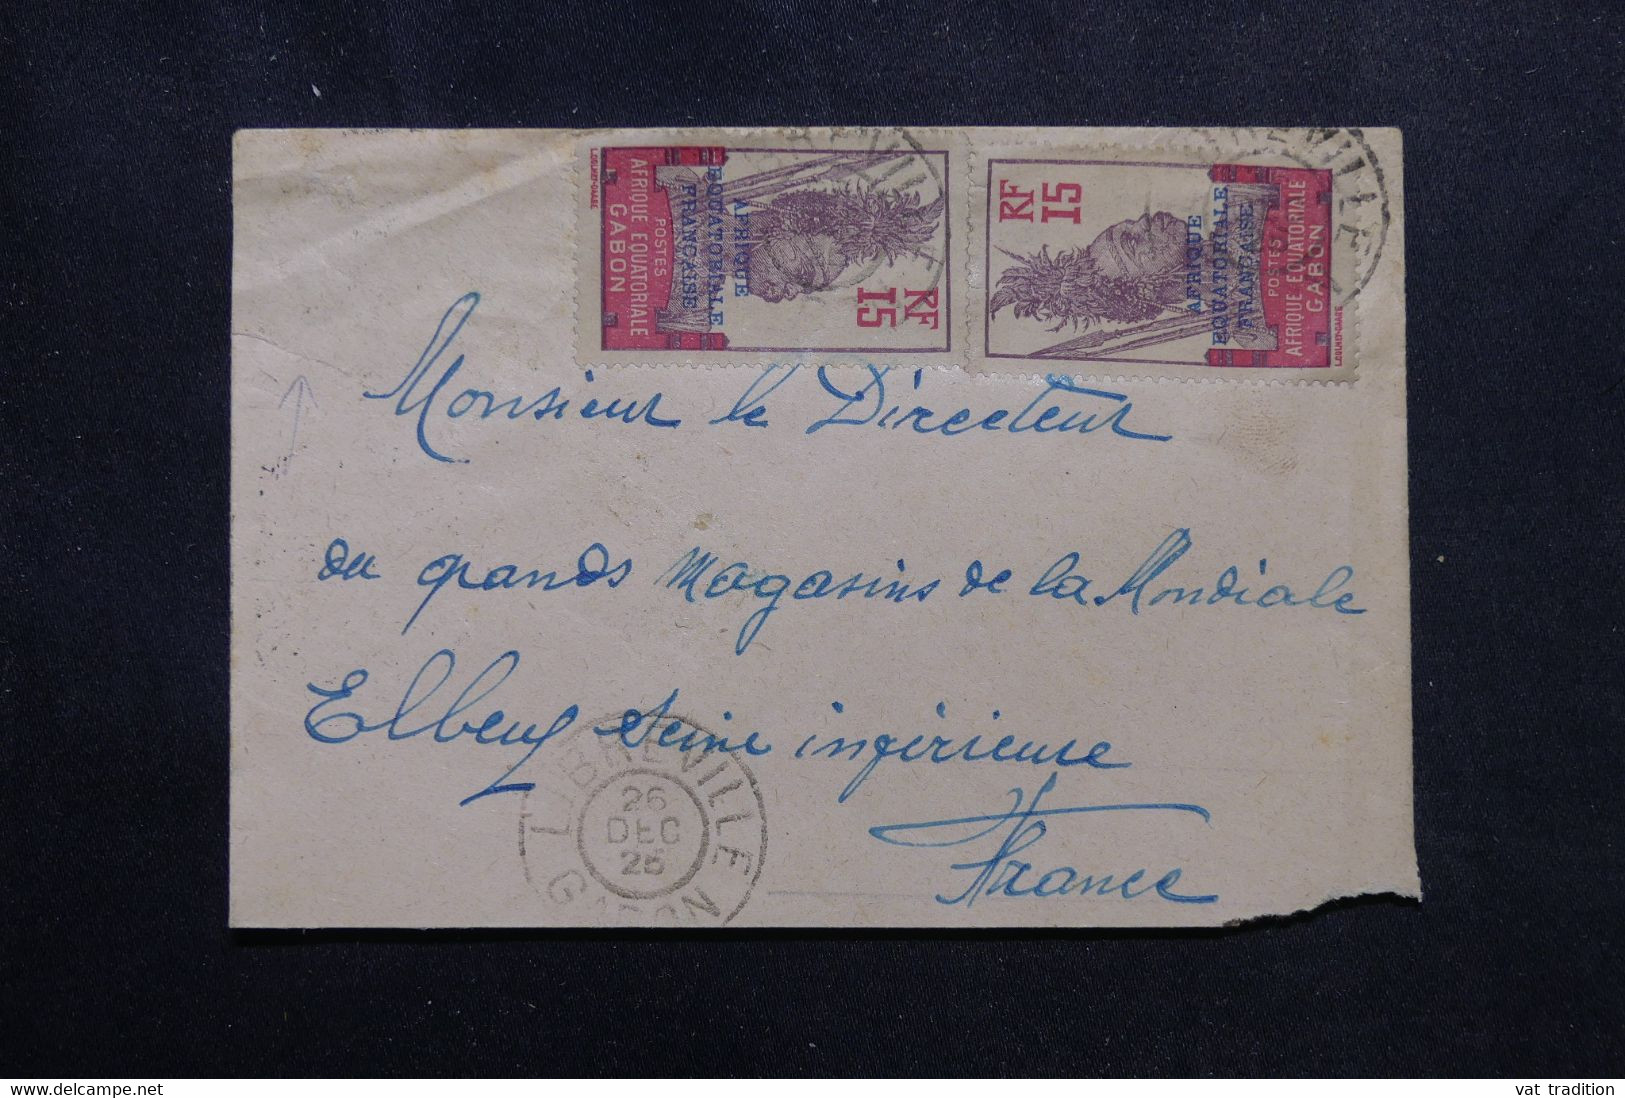 LIBREVILLE
POSTES
AFRIQUE EQUATORIALE
GABON
L.COLMET-DAAGE
AFRIQUE
EQUATORIALE
FRANÇAISE
15
RF
RF
15
AFRIQUE
EQUATORIALE
FRANÇAISE
POSTES
AFRIQUE EQUATORIALE
GABON
L.COLMET-DAAGE
LIBREVILLE
Monsieur le Directeur
du grands Magasins de la Mondiale
Elbeuf Seine inférieure
France
LIBREVILLE
26
DEC
25
GABON
www.delcampe.net
vat tradition